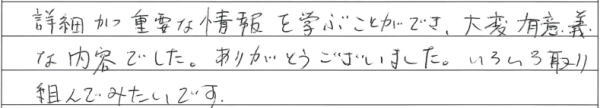 詳細かつ重要な情報を学ぶことができ、大変有意義
な内容でした。ありがとうございました。いろいろ取り
組んでみたいです。